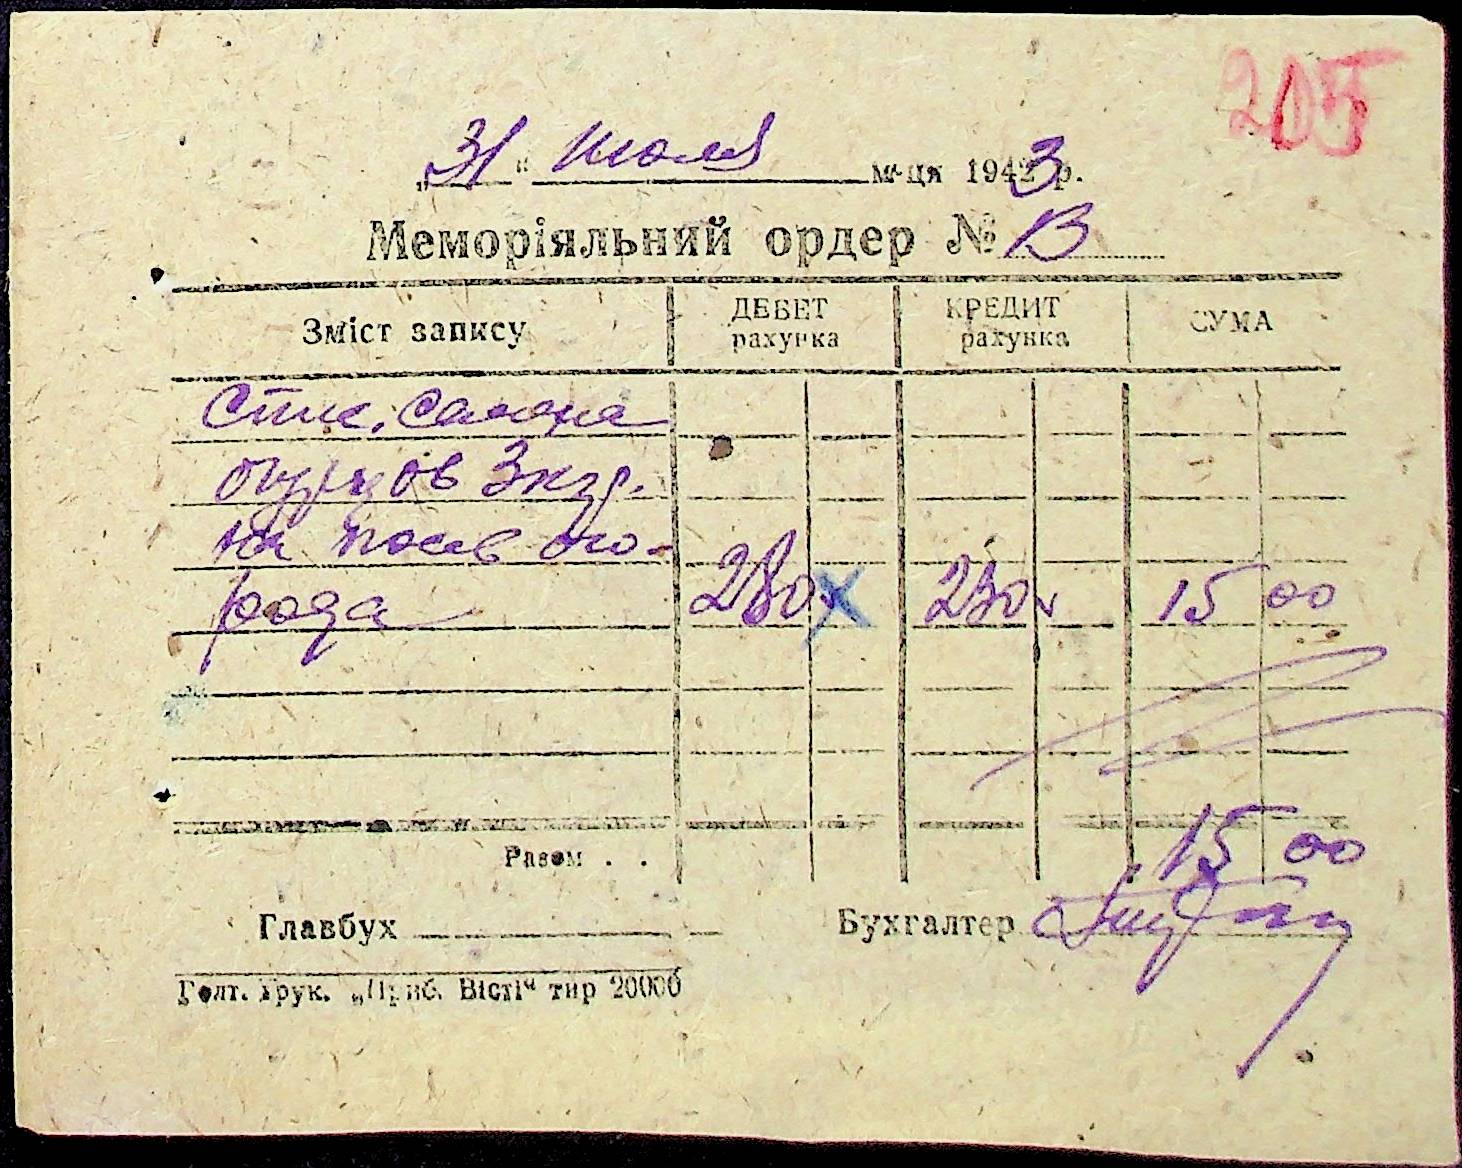 205
„31“ июля м-ця 1943 р.
Меморіяльний ордер № В
Зміст запису
ДЕБЕТ рахунка
КРЕДИТ рахунка
СУМА
огурцов 3 кгр.
на посев ого-
рода 280 230 15 00
Разом . . 15 00
Главбух
Бухгалтер
Голт. Друк. „Приб. Вісті“ тир 20000